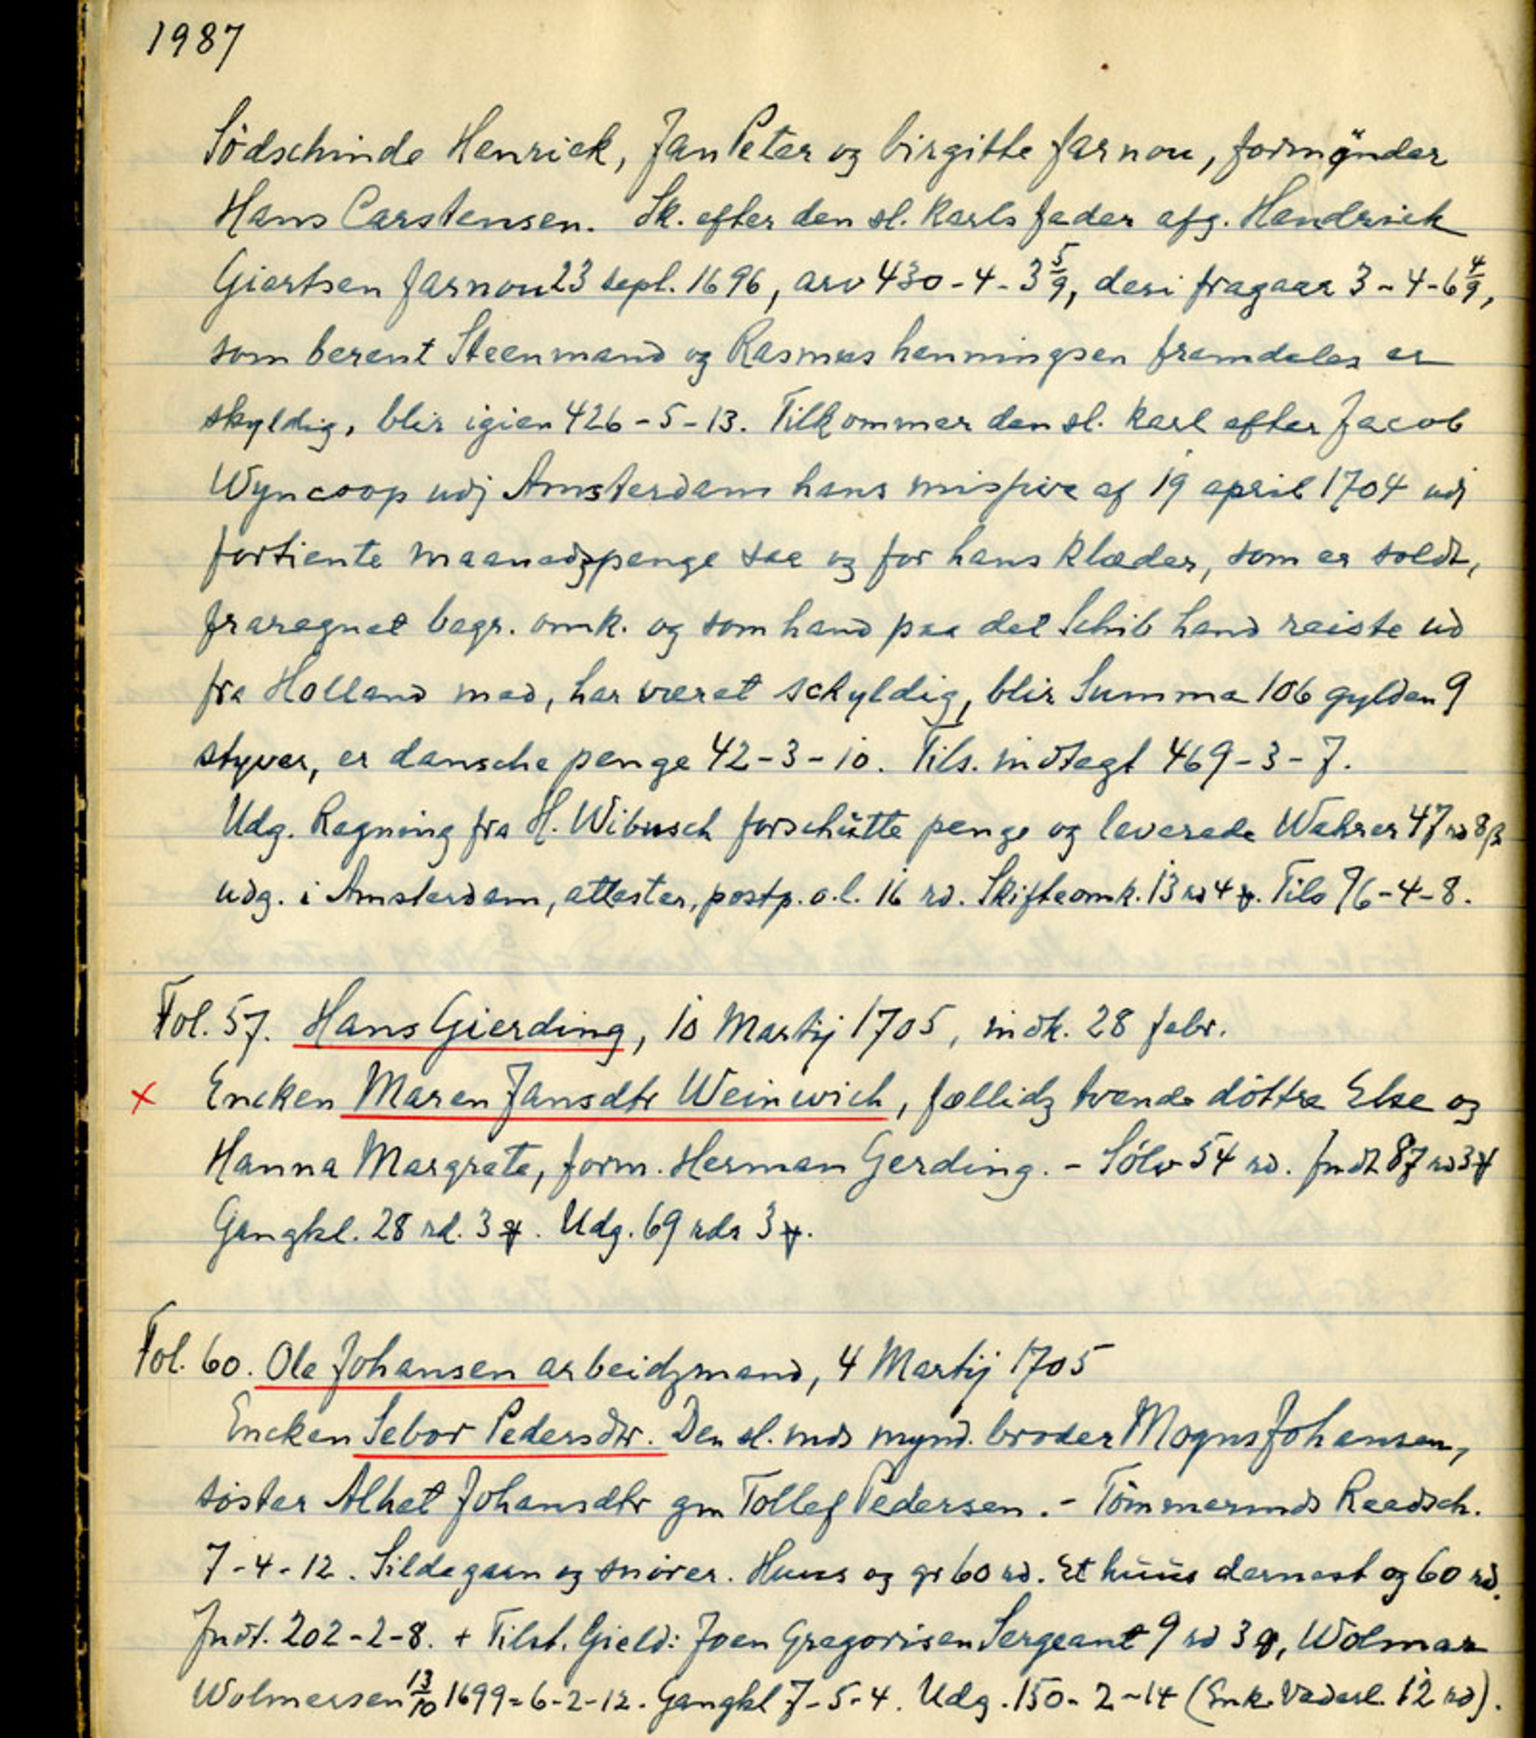 1987
Södschinde Henrich, Jan Peter og birgitte farnou, formÿnder
Hans Carstensen. Sk. efter den sl. karls fader afg. Hendrich
Giertsen farnou 23 sept. 1696, arv 430-4-3 5/9, deri fragaar 3-4-6 4/9,
som berent Steenmand og Rasmus henningsen fremdeles er
skyldig, blir igien 426-5-13. Tilkommer den sl. karl efter Jacob
Wyncoop udj Amsterdam hans missive af 19 april 1704 udi
fortiente maanedzpenge saa og for hans klæder, som er soldt,
fraregnet begr. omk. og som hand paa det Schib hand reiste ud
fra Holland med, har været schyldig, blir Summa 106 gylden 9
styver, er dansche penge 42-3-10. Tils. indtegt 469-3-7.
Udg. Regning fra H. Wibusch forschütte penge og leverede Wahrer 47 rd 8 β
udg. i Amsterdam, attester, postp. o.l. 16 rd. Skifteomk. 13 rd 4 ꝟ. Tils 76-4-8.
Fol. 57. Hans Gierding, 10 Martij 1705, indk. 28 febr.
x Encken Maren Jansdtr Weinwich, fællidz tvende döttre Else og
Hanna Margrete, form. Herman Gerding. - Sölv 54 rd. Indt 87 rd 3 ꝟ
Gangkl. 28 rd. 3 ꝟ. Udg. 69 rdr 3 ꝟ.
Fol. 60. Ole Johansen arbeidzmand, 4 Martij 1705
Encken Sebor Pedersdtr. Den sl. mds mynd. broder Mogns Johansen,
söster Alhet Johansdtr gm Tollef Pedersen. - Tömmermds Reedsch.
7-4-12. Sildegarn og snörer. Huus og gr 60 rd. Et huus dernest og 60 rd.
Indt. 202-2-8. + Tilst. Gield: Joen Gregorisen Sergeant 9 rd 3 ꝟ, Wolmar
Wolmersen 13/10 1699 = 6-2-12. Gangkl 7-5-4. Udg. 150-2-14 (Enk. Vederl. 12 rd).